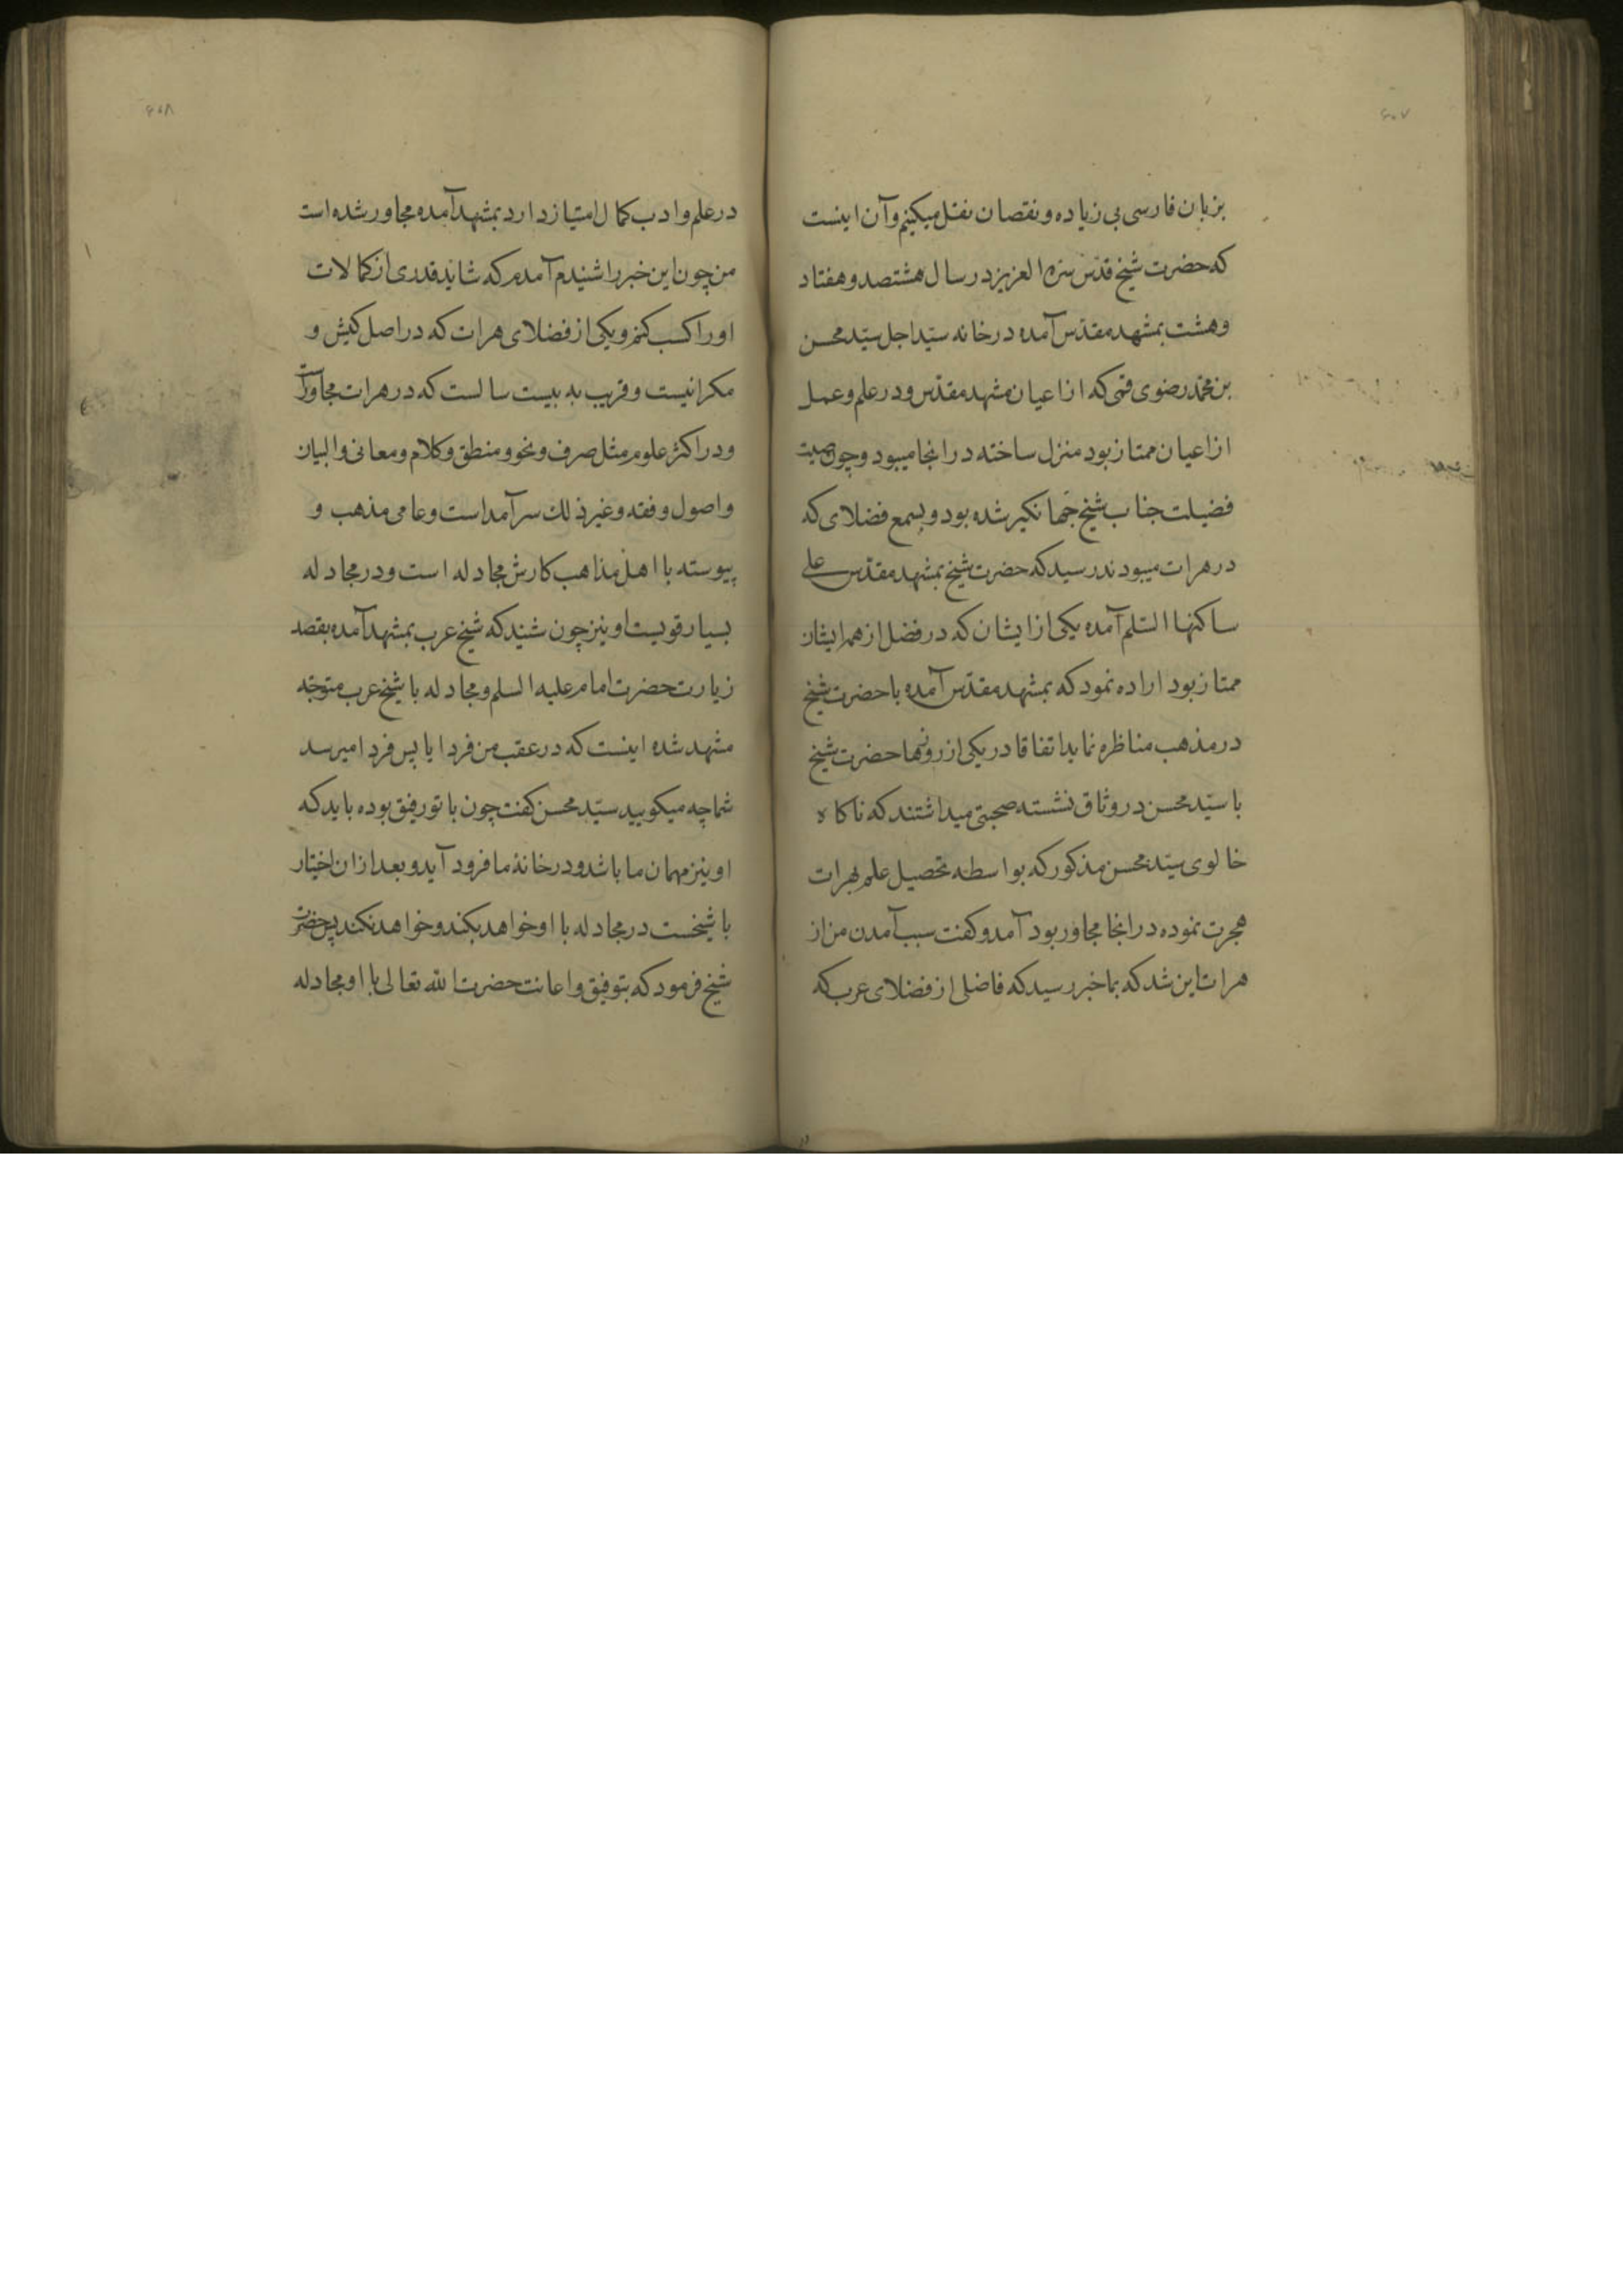 ۶۰۷
بزبان فارسی بی زیاده و نقصان نقل میکنیم و آن اینست
که حضرت شیخ قدّس سرّه العزیز در سال هشتصد و هفتاد
و هشت بمشهد مقدّس آمده در خانه سیّد اجل سیّد محسن
بن محمّد رضوی قمی که از اعیان مشهد مقدّس و در علم و عمل
از اعیان ممتاز بود منزل ساخته در انجا میبود و چون صیت
فضیلت جناب شیخ جهانکیر شده بود و بسمع فضلای که
در هرات میبودند رسید که حضرت شیخ بمشهد مقدّس علی
ساکنها السّلم آمده یکی از ایشان که در فضل از همه ایشان
ممتاز بود اراده نمود که بمشهد مقدّس آمده با حضرت شیخ
در مذهب مناظره نماید اتفاقا در یکی از روزها حضرت شیخ
با سیّد محسن در وثاق نشسته صحبتی میداشتند که ناکاه
خالوی سیّد محسن مذکور که بواسطه تحصیل علم بهرات
هجرت نموده در انجا مجاور بود آمد و کفت سبب آمدن من از
هرات این شد که بما خبر رسید که فاضلی از فضلای عرب که
۶۰۸
در علم و ادب کمال امتیاز دارد بمشهد آمده مجاور شده است
من چون این خبر را شنیدم آمدم که شاید قدری از کمالات
او را کسب کنم و یکی از فضلای هرات که در اصل کیش و
مکرانیست و قریب به بیست سالست که در هرات مجاور است
و در اکثر علوم مثل صرف و نحو و منطق و کلام و معانی و البیان
و اصول و فقه و غیر ذلك سرآمد است و عامی مذهب و
پیوسته با اهل مذاهب کارش مجادله است و در مجادله
بسیار قویست او نیز چون شنید که شیخ عرب بمشهد آمده بقصد
زیارت حضرت امام علیه السلم و مجادله با شیخ عرب متوجّه
مشهد شده اینست که در عقب من فردا یا پس فردا میرسد
شما چه میکویید سیّد محسن کفت چون با تو رفیق بوده باید که
او نیز مهمان ما باشد و در خانۀ ما فرود آید و بعد ازان اختیار
با شیخست در مجادله با او خواهد بکند و خواهد نکند پس حضرت
شیخ فرمود که بتوفیق و اعانت حضرت الله تعالی با او مجادله